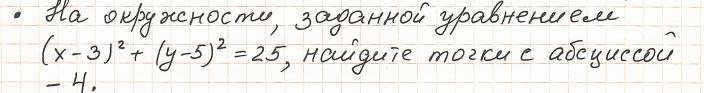 • На окружности, заданной уравнением
(x-3)² + (y-5)² = 25, найдите точки с абсциссой
- 4.